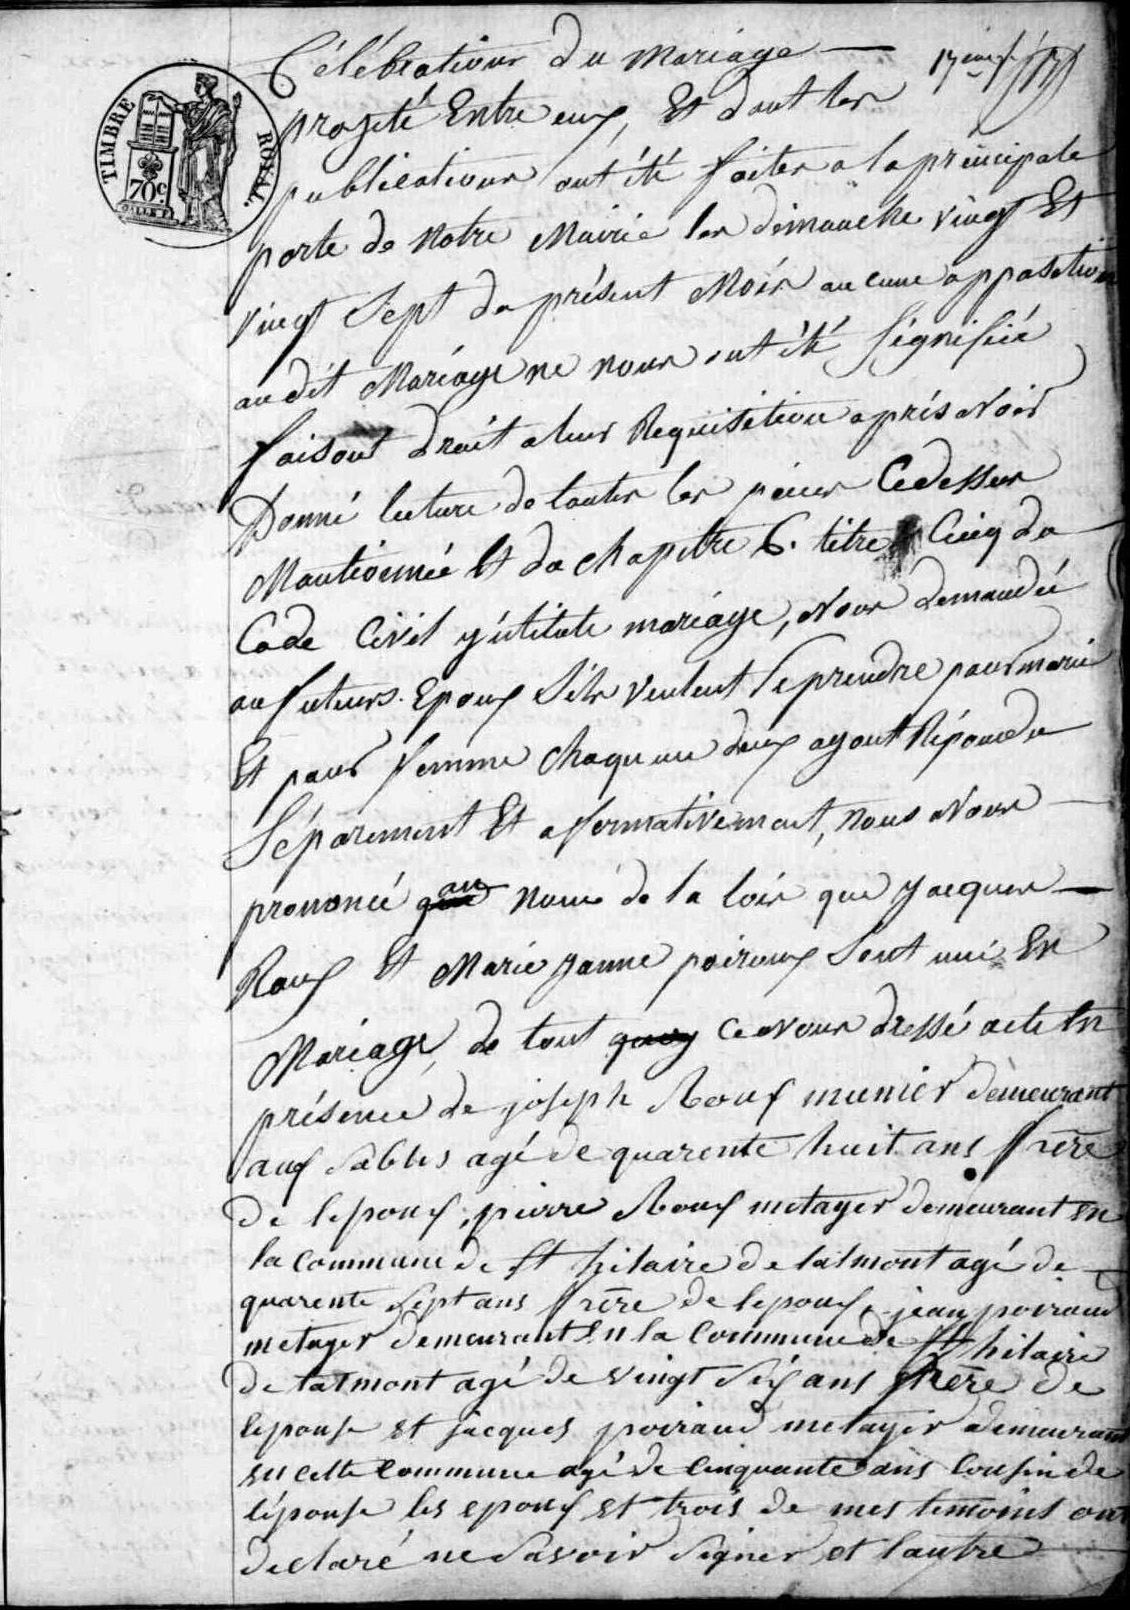 Célébration du mariage —
17eme f.
TIMBRE ROYAL.
70c
projeté Entre eux, Et dont les
publications ont été faites a la principale
porte de Notre Mairie les dimanche vingt Et
vingt Sept du présent Mois aucune opposition
au dit Mariage ne nous ont été Signifiée
faisant droit a leur Requisition après avoir
Donné lecture de toutes les pièces Cedessus
Mantionnée Et du chapitre 6. titre Cinq du
Code Civil yntitule mariage, Avons demandée
aux futurs Epoux S'ils veulent se prendre pour marie
Et pour femme chaqu'un deux ayant Répondu
Séparement Et afirmativement, nous Avons —
prononcé au nom de la loix que Jacques —
Roux Et Marie Janne poiroux sont unie En
Mariage, de tout ce avons dressé acte En
présence de joseph Roux munier demeurant
aux sables agé de quarente huit ans frere
de lepoux, pierre Roux metayer demeurant en
la commune de st hilaire de talmont agé de —
quarente sept ans frere de lepoux, jean poiraud
metayer demeurant en la commune de st hilaire
de talmont agé de vingt six ans frere de
lepouse et jacques poiraud metayer demeurant
en cette commune agé de cinquante ans cousin de
l'épouse les epoux et trois de mes temoins ont
declaré ne savoir signer et lautre —